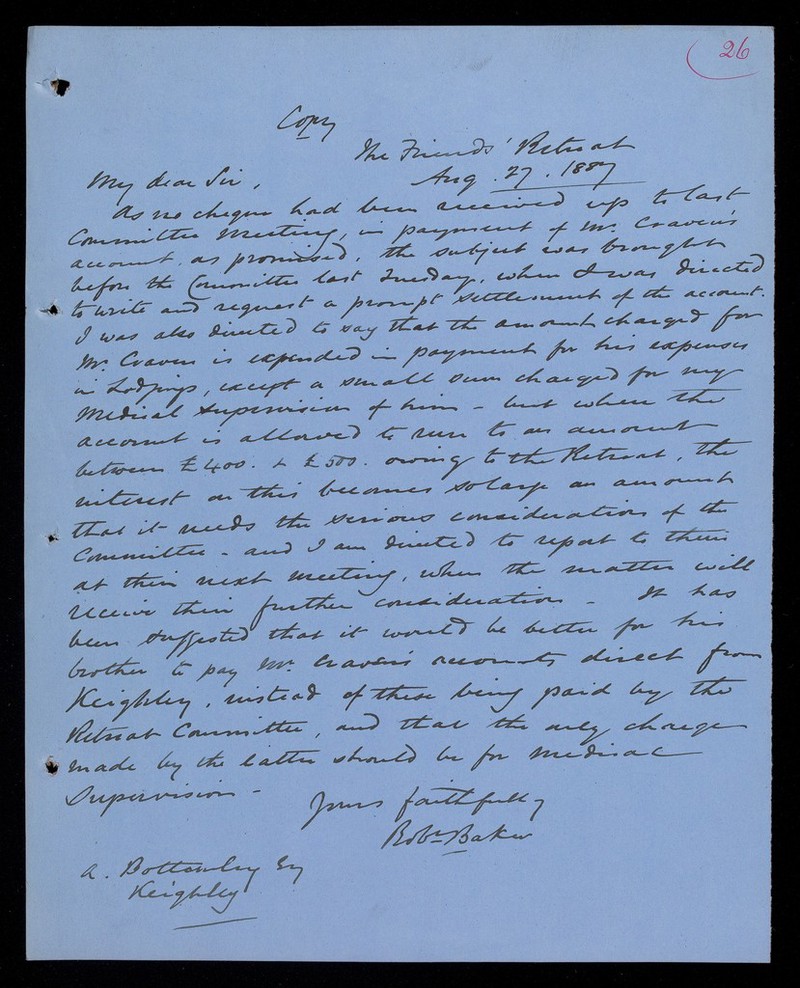 26
Copy
The Friends' Retreat
Aug. 27. 1887
My dear Sir,
As no cheque had been received up to last
Committee Meeting, in payment of Mr. Craven's
account, as promised, the subject was brought
before the Committee last Tuesday, when I was directed
to write and request a prompt settlement of the account.
I was also directed to say that the amount charged for
Mr. Craven is expended in payment for his expenses
in Lodgings, except a small sum charged for my
Medical Supervision of him - but when the
account is allowed to run to an amount
between £400. & £500. owing to the Retreat, the
interest on this becomes so large an amount
that it needs the serious consideration of the
Committee - and I am directed to report to them
at their next meeting, when the matter will
receive their further consideration - It has
been suggested that it would be better for his
brother to pay Mr. Craven's accounts direct from
Keighley, instead of these being paid by the
Retreat Committee, and that the only charge
made by the latter should be for medical
Supervision -
Yours faithfully
Robt Baker
A. Bottomley Esq
Keighley